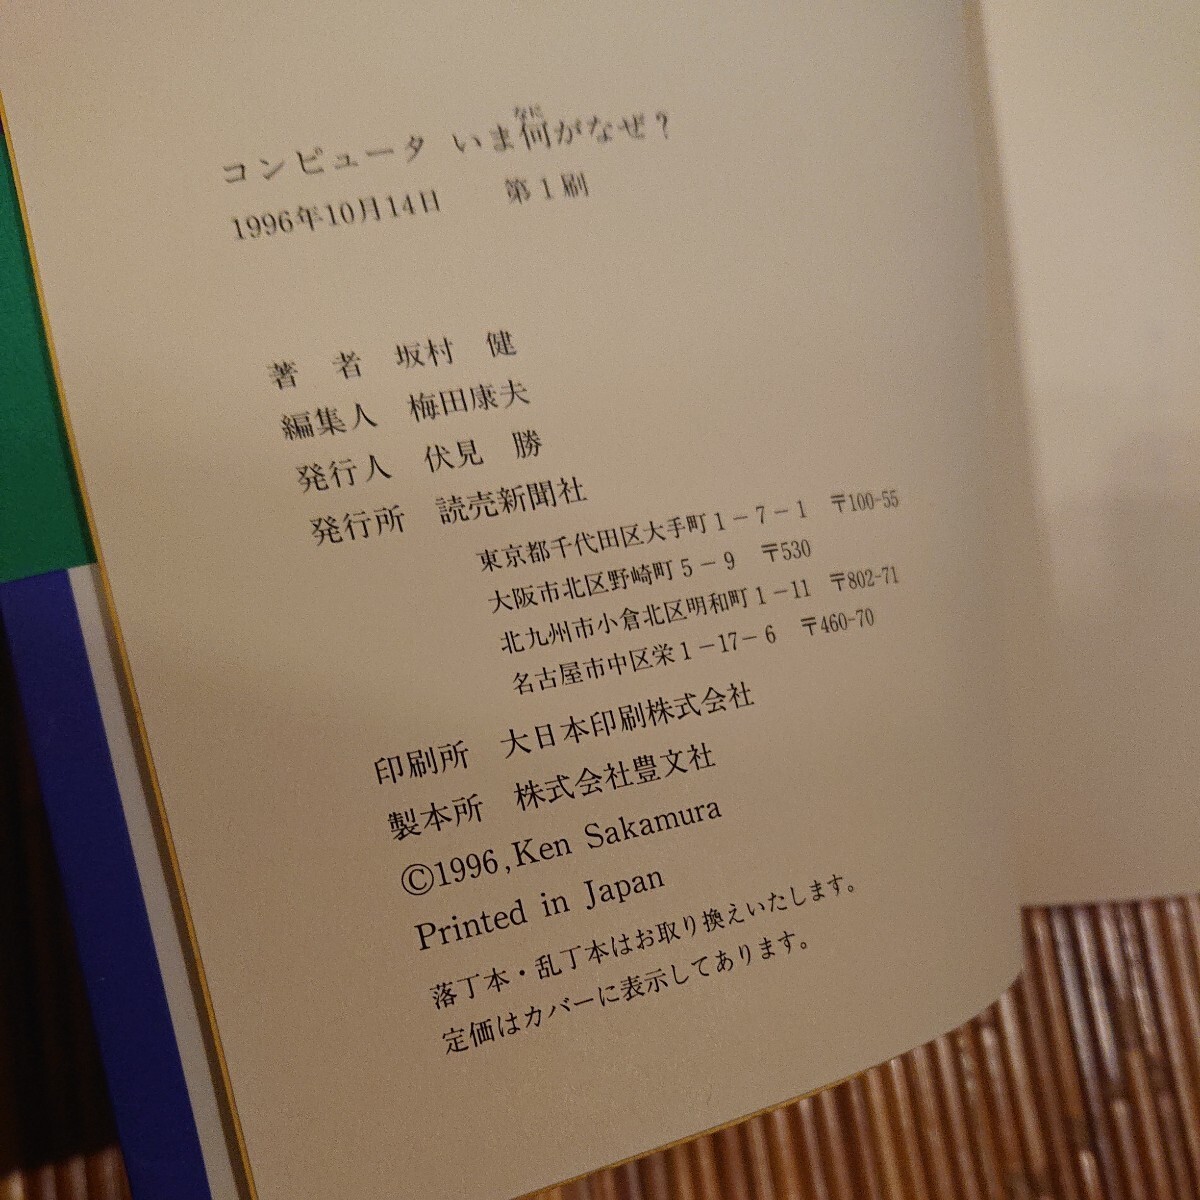 コンピュータ いま何がなぜ?
なに
1996年10月14日 第1刷
著 者 坂村 健
編集人 梅田康夫
発行人 伏見 勝
発行所 読売新聞社
東京都千代田区大手町1-7-1 〒100-55
大阪市北区野崎町5-9 〒530
北九州市小倉北区明和町1-11 〒802-71
名古屋市中区栄1-17-6 〒460-70
印刷所 大日本印刷株式会社
製本所 株式会社豊文社
©1996, Ken Sakamura
Printed in Japan
落丁本・乱丁本はお取り換えいたします。
定価はカバーに表示してあります。